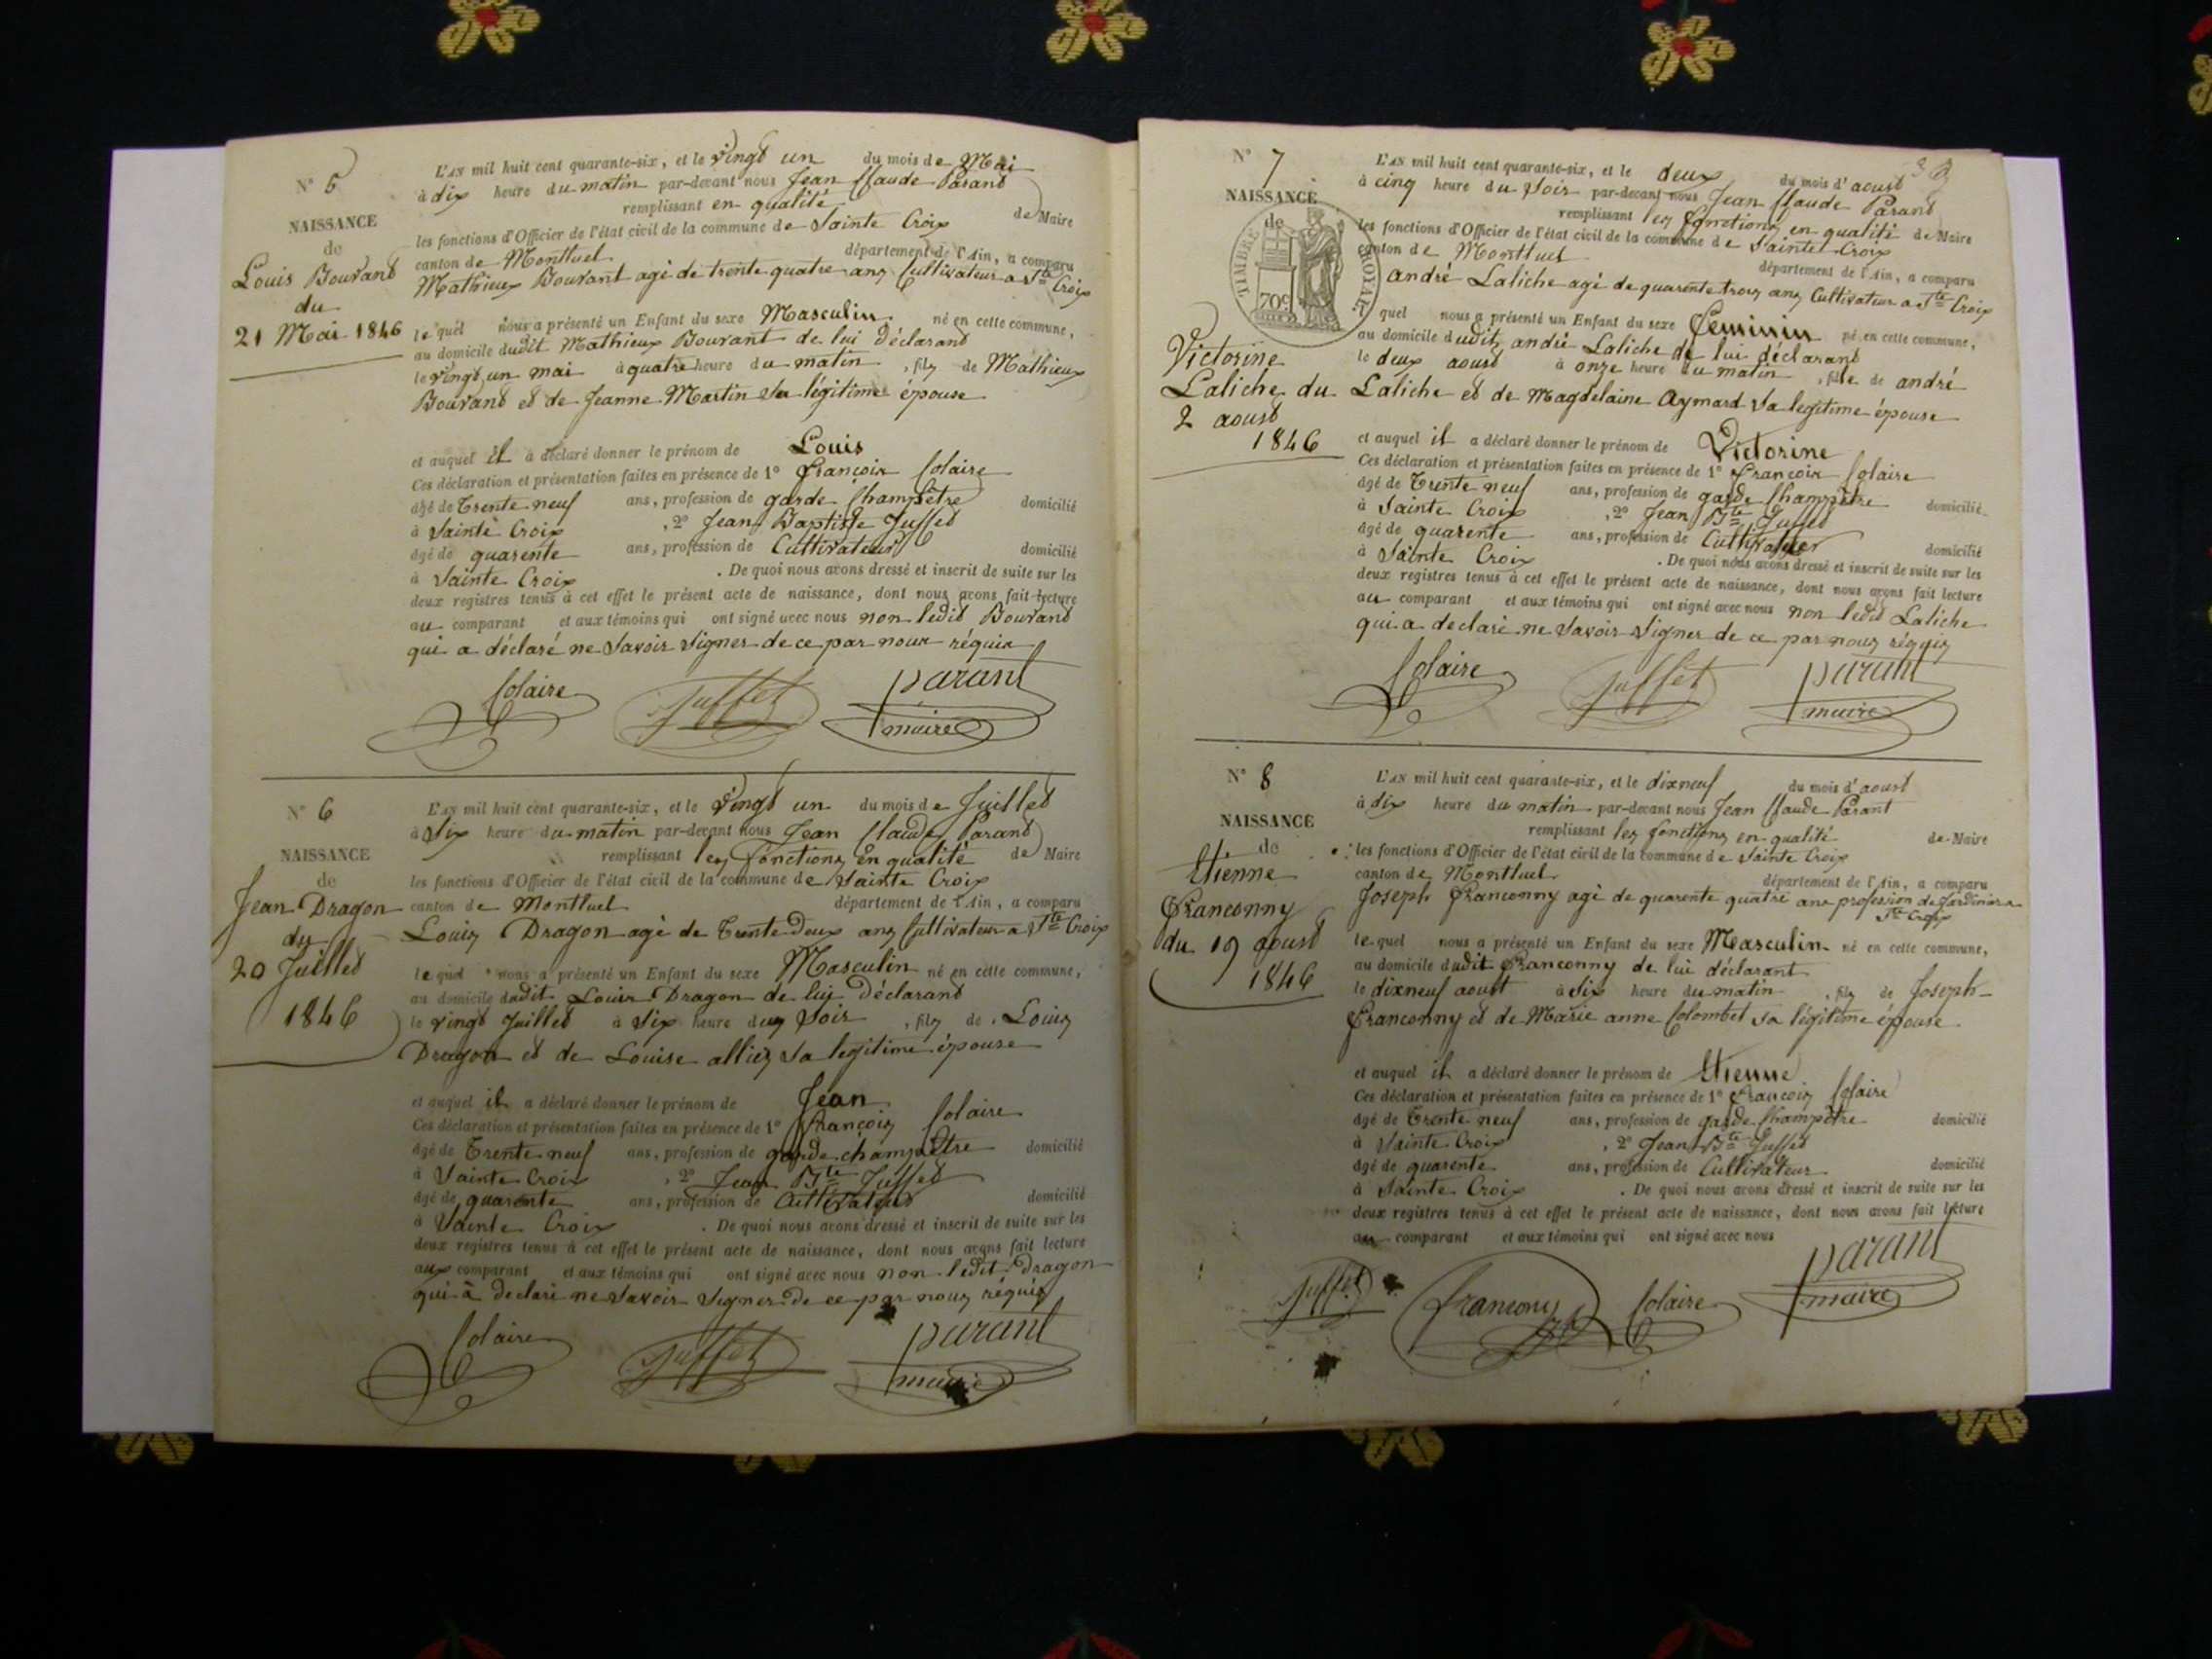 N° 5
NAISSANCE
de
Louis Bouvand
du
21 Mai 1846
L'AN mil huit cent quarante-six, et le vingt un du mois de Mai
à dix heure du matin par-devant nous Jean Claude Parand
remplissant en qualité de Maire
les fonctions d'Officier de l'état civil de la commune de Sainte Croix
canton de Montluel département de l'Ain, a comparu
Mathieux Bouvant agé de trente quatre ans Cultivateur a Ste Croix
lequel nous a présenté un Enfant du sexe Masculin né en cette commune,
au domicile dudit Mathieux Bouvant de lui déclarand
le vingt un mai à quatre heure du matin, fils de Mathieux
Bouvand et de Jeanne Martin sa légitime épouse
et auquel il a déclaré donner le prénom de Louis
Ces déclaration et présentation faites en présence de 1° François Colaire
âgé de trente neuf ans, profession de garde Champêtre domicilié
à Sainte Croix, 2° Jean Baptiste Juffet
âgé de quarente ans, profession de Cultivateur domicilié
à Sainte Croix. De quoi nous avons dressé et inscrit de suite sur les
deux registres tenus à cet effet le présent acte de naissance, dont nous avons fait lecture
au comparant et aux témoins qui ont signé avec nous non ledit Bouvand
qui a déclaré ne savoir signer de ce par nous réquis
Colaire Juffet parant
maire
N° 6
NAISSANCE
de
Jean Dragon
du
20 Juillet
1846
L'AN mil huit cent quarante-six, et le vingt un du mois de Juillet
à six heure du matin par-devant nous Jean Claude Parand
remplissant les fonctions en qualité de Maire
les fonctions d'Officier de l'état civil de la commune de Sainte Croix
canton de Montluel département de l'Ain, a comparu
Louis Dragon agé de trente deux ans Cultivateur a Ste Croix
lequel nous a présenté un Enfant du sexe Masculin né en cette commune,
au domicile dudit Louis Dragon de lui déclarand
le vingt Juillet à six heure du soir, fils de Louis
Dragon et de Louise alliez sa legitime épouse
et auquel il a déclaré donner le prénom de Jean
Ces déclaration et présentation faites en présence de 1° François Colaire
âgé de trente neuf ans, profession de garde champêtre domicilié
à Sainte Croix, 2° Jean Bte Juffet
âgé de quarente ans, profession de Cultivateur domicilié
à Sainte Croix. De quoi nous avons dressé et inscrit de suite sur les
deux registres tenus à cet effet le présent acte de naissance, dont nous avons fait lecture
au comparant et aux témoins qui ont signé avec nous non ledit Dragon
qui à declaré ne savoir signer de ce par nous réquis
Colaire Juffet parant
maire
N° 7
NAISSANCE
de
TIMBRE ROYAL
70c
Victorine
Laliche du
2 aoust
1846
L'AN mil huit cent quarante-six, et le deux du mois d'aoust
à cinq heure du soir par-devant nous Jean Claude Parand
remplissant les fonctions en qualité de Maire
les fonctions d'Officier de l'état civil de la commune de Sainte Croix
canton de Montluel département de l'Ain, a comparu
andré Laliche agé de quarente trois ans Cultivateur a Ste Croix
lequel nous a présenté un Enfant du sexe feminin né en cette commune,
au domicile dudit andré Laliche de lui déclarand
le deux aoust à onze heure du matin, fille de andré
Laliche et de Magdelaine Aymard sa legitime épouse
et auquel il a déclaré donner le prénom de Victorine
Ces déclaration et présentation faites en présence de 1° François Colaire
âgé de trente neuf ans, profession de garde Champêtre domicilié
à Sainte Croix, 2° Jean Bte Juffet
âgé de quarente ans, profession de Cultivateur domicilié
à Sainte Croix. De quoi nous avons dressé et inscrit de suite sur les
deux registres tenus à cet effet le présent acte de naissance, dont nous avons fait lecture
au comparant et aux témoins qui ont signé avec nous non ledit Laliche
qui a declaré ne savoir signer de ce par nous réquis
Colaire Juffet parant
maire
N° 8
NAISSANCE
de
Etienne
Franconny
du 19 aoust
1846
L'AN mil huit cent quarante-six, et le dixneuf du mois d'aoust
à dix heure du matin par-devant nous Jean Claude Parant
remplissant les fonctions en qualité de Maire
les fonctions d'Officier de l'état civil de la commune de Sainte Croix
canton de Montluel département de l'Ain, a comparu
Joseph Franconny agé de quarente quatre ans profession de Jardinier a
Ste Croix
lequel nous a présenté un Enfant du sexe Masculin né en cette commune,
au domicile dudit Franconny de lui déclarant
le dixneuf aoust à six heure du matin, fils de Joseph
Franconny et de Marie anne Colombet sa légitime épouse
et auquel il a déclaré donner le prénom de Etienne
Ces déclaration et présentation faites en présence de 1° François Colaire
âgé de trente neuf ans, profession de garde Champêtre domicilié
à Sainte Croix, 2° Jean Bte Juffet
âgé de quarente ans, profession de Cultivateur domicilié
à Sainte Croix. De quoi nous avons dressé et inscrit de suite sur les
deux registres tenus à cet effet le présent acte de naissance, dont nous avons fait lecture
au comparant et aux témoins qui ont signé avec nous
Juffet francony Colaire parant
maire